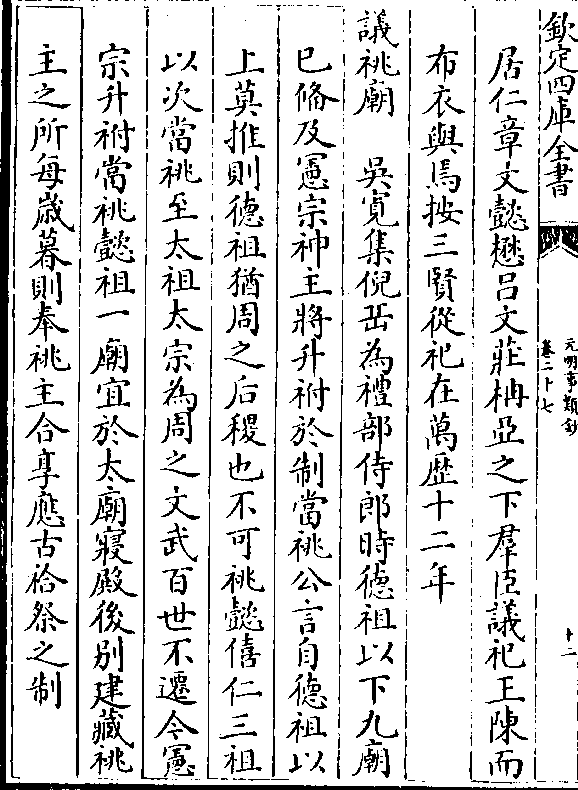 欽定四庫全書
元明事類鈔
卷二十七
十二
居仁章文懿懋吕文莊柟亞之下羣臣議祀王陳而
布衣與焉按三賢從祀在萬歴十二年
議祧廟　吳寛集倪岳為禮部侍郎時德祖以下九廟
已備及憲宗神主將升祔於制當祧公言自德祖以
上莫推則德祖猶周之后稷也不可祧懿僖仁三祖
以次當祧至太祖太宗為周之文武百世不遷今憲
宗升祔當祧懿祖一廟宜於太廟寢殿後别建藏祧
主之所每歳暮則奉祧主合享應古祫祭之制